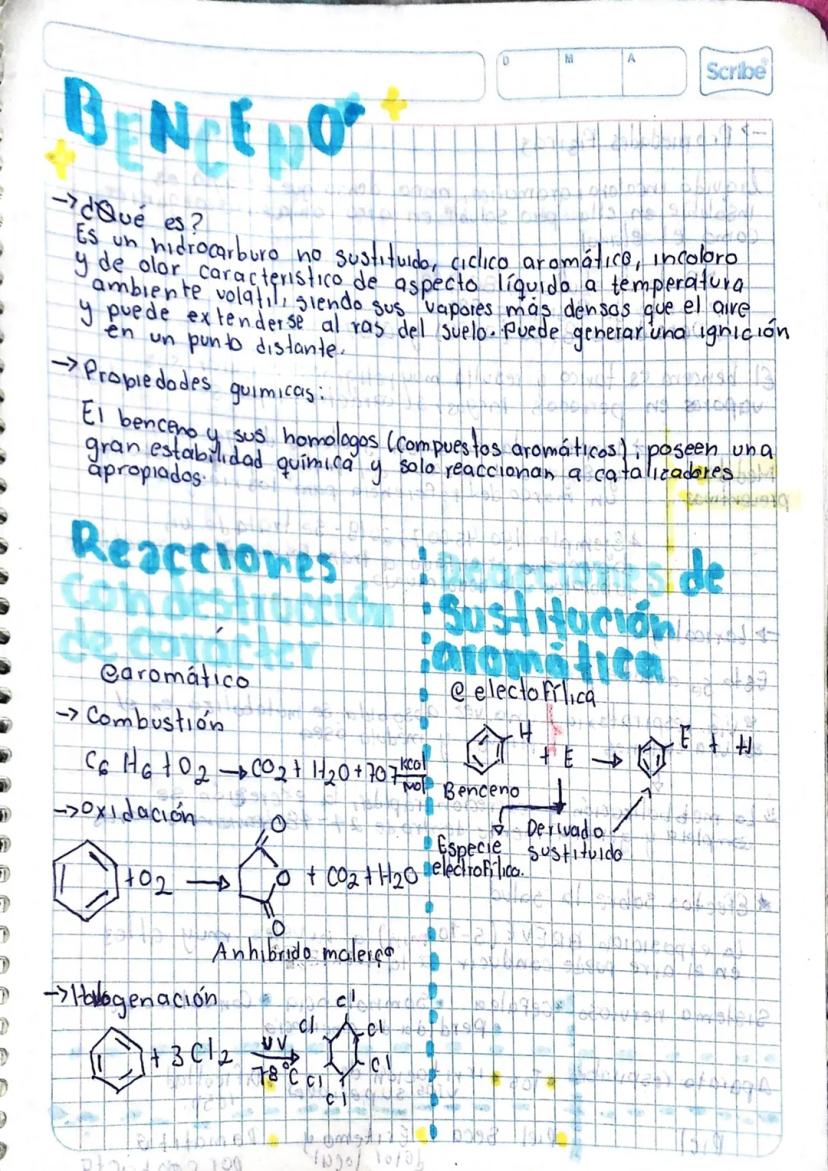 D M A
Scribe
BENCENO
→ ¿Qué es?
Es un hidrocarburo no sustituido, ciclico aromático, incoloro
y de olor caracteristico de aspecto líquido a temperatura
ambiente volatil, siendo sus vapores más densos que el aire
y puede extenderse al ras del suelo. Puede generar una ignición
en un punto distante.
→ Propiedades quimicas:
El benceno y sus homologos (compuestos aromáticos); poseen una
gran estabilidad química y solo reaccionan a catalizadores
apropiados.
Reacciones
con destrucción
de carácter
@aromático
→ Combustión
C6 H6 + O2 → CO2 + H2O + 707 kcal/mol
→ Oxidación
O
+ O2 → O + CO2 + H2O
O
Anhibrido maleico
→ Halogenación
cl
cl cl
+ 3 Cl2 UV → cl
78°C cl
cl
Reacciones de
sustitución
aromática
@ electofílica
H E
+ E → + H
Benceno
Especie Derivado
electrofílica. sustituido